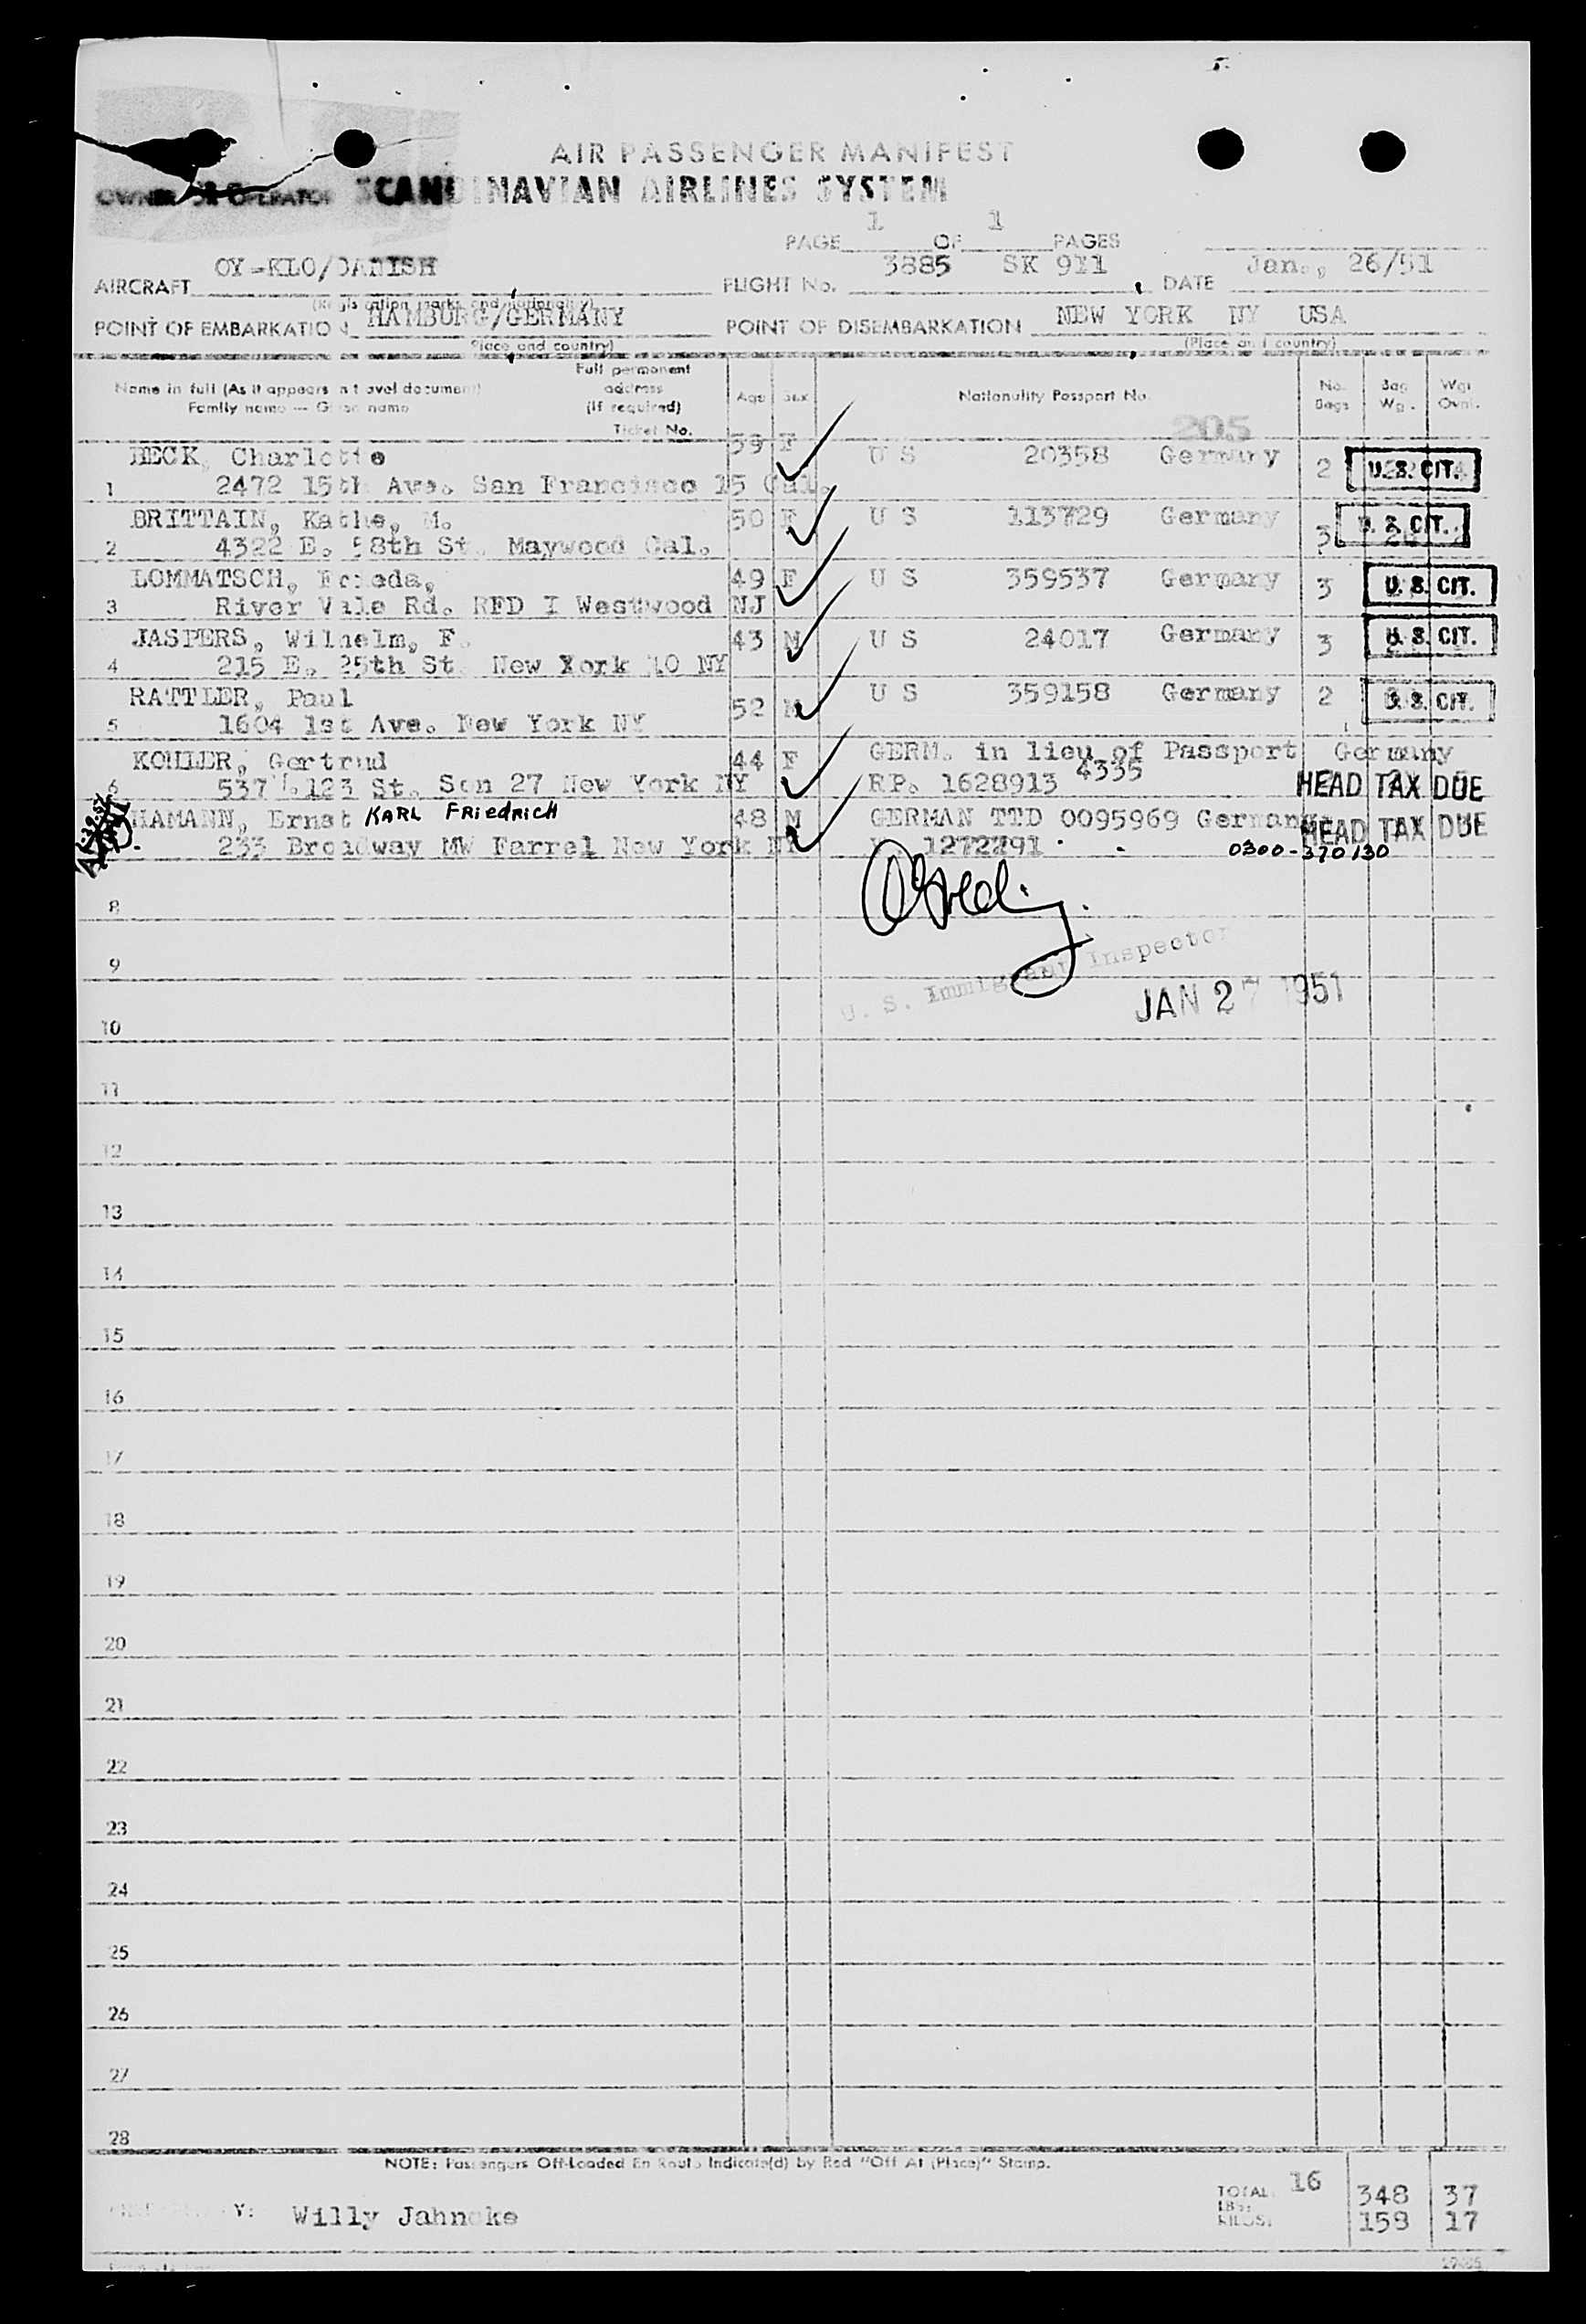 AIR PASSENGER MANIFEST
OWNER OR OPERATOR SCANDINAVIAN AIRLINES SYSTEM
PAGE 1 OF 1 PAGES
AIRCRAFT OY-KLO/DANISH FLIGHT No. 3885 SK 911 DATE Jan., 26/51
(Registration marks and nationality)
POINT OF EMBARKATION HAMBURG/GERMANY POINT OF DISEMBARKATION NEW YORK NY USA
(Place and country) (Place and country)
Name in full (As it appears in travel document) Full permanent address (If required) Age Sex Nationality Passport No. No. Bags Bag Wgt. Wgt Ovnt.
Family name — Given name Ticket No.
205
BECK, Charlotte 59 F U S 20358 Germany 2 U.S. CIT.
1 2472 15th Ave. San Francisco 15 Cal.
BRITTAIN, Kathe, M. 50 F U S 113729 Germany 3 U. S. CIT.
2 4322 E. 58th St. Maywood Cal.
LOMMATSCH, 49 F U S 359537 Germany 3 U. S. CIT.
3 River Vale Rd. RFD I Westwood NJ
JASPERS, Wilhelm, F. 43 M U S 24017 Germany 3 U. S. CIT.
4 215 E. 25th St. New York 10 NY
RATTLER, Paul 52 M U S 359158 Germany 2 U. S. CIT.
5 1604 1st Ave. New York NY
KOHLER, Gertrud 44 F GERM. in lieu of Passport Germany
6 537 W. 123 St. Son 27 New York NY RP. 1628913 4335 HEAD TAX DUE
HAMANN, Ernst KARL FRIEDRICH 48 M GERMAN TTD 0095969 Germany HEAD TAX DUE
233 Broadway MW Farrel New York NY 1272791 0300-370130
8
U. S. Immigrant Inspector
9
JAN 27 1951
10
11
12
13
14
15
16
17
18
19
20
21
22
23
24
25
26
27
28
NOTE: Passengers Off-Loaded En Route Indicate(d) by Red "Off At (Place)" Stamp.
TOTAL 16
LBS: 348 37
Y: Willy Jahncke KILOS: 158 17